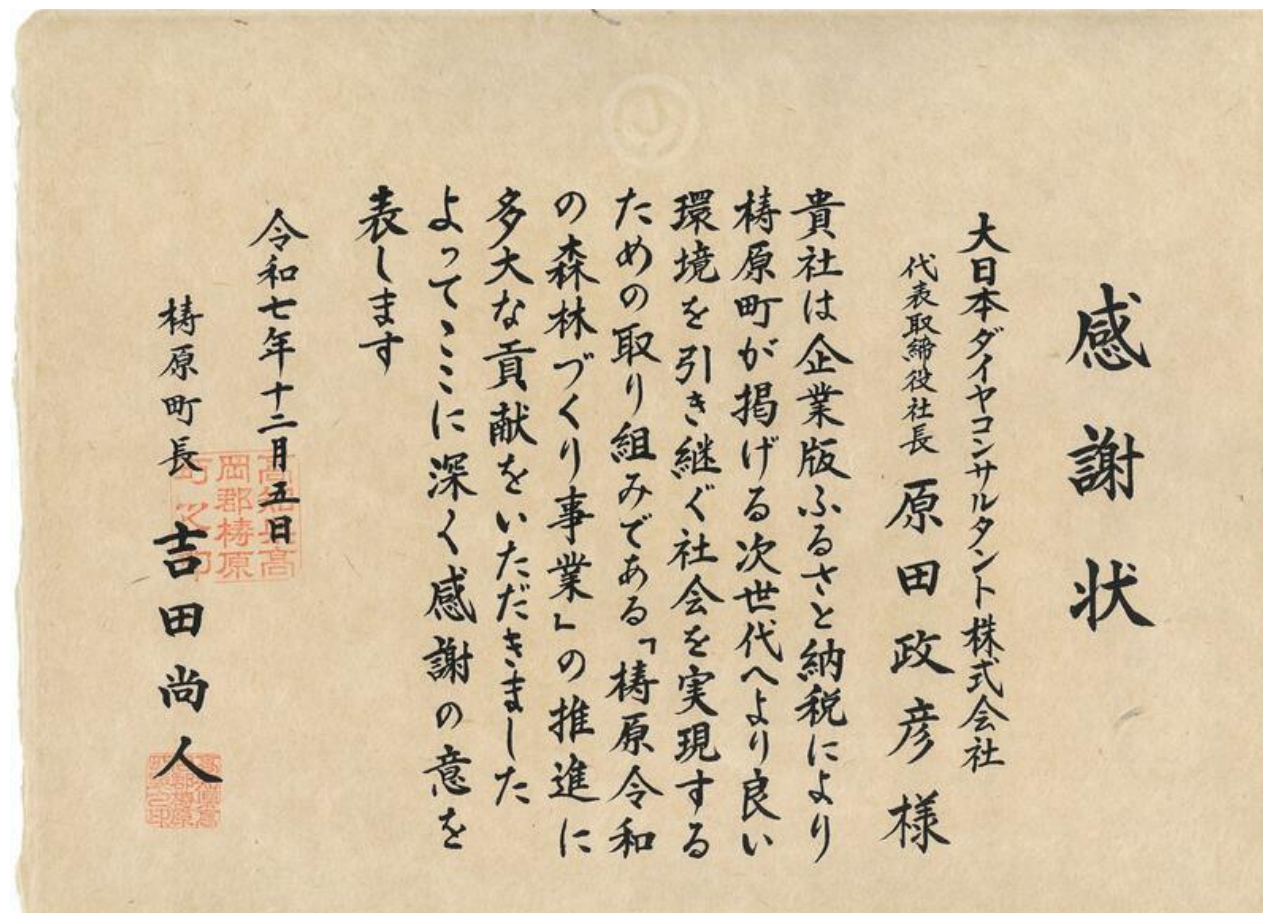 感謝状
大日本ダイヤコンサルタント株式会社
代表取締役社長 原田政彦様
貴社は企業版ふるさと納税により
梼原町が掲げる次世代へより良い
環境を引き継ぐ社会を実現する
ための取り組みである「梼原令和
の森林づくり事業」の推進に
多大な貢献をいただきました
よってここに深く感謝の意を
表します
令和七年十二月五日
梼原町長 吉田尚人
高知県高
岡郡梼原
町之印